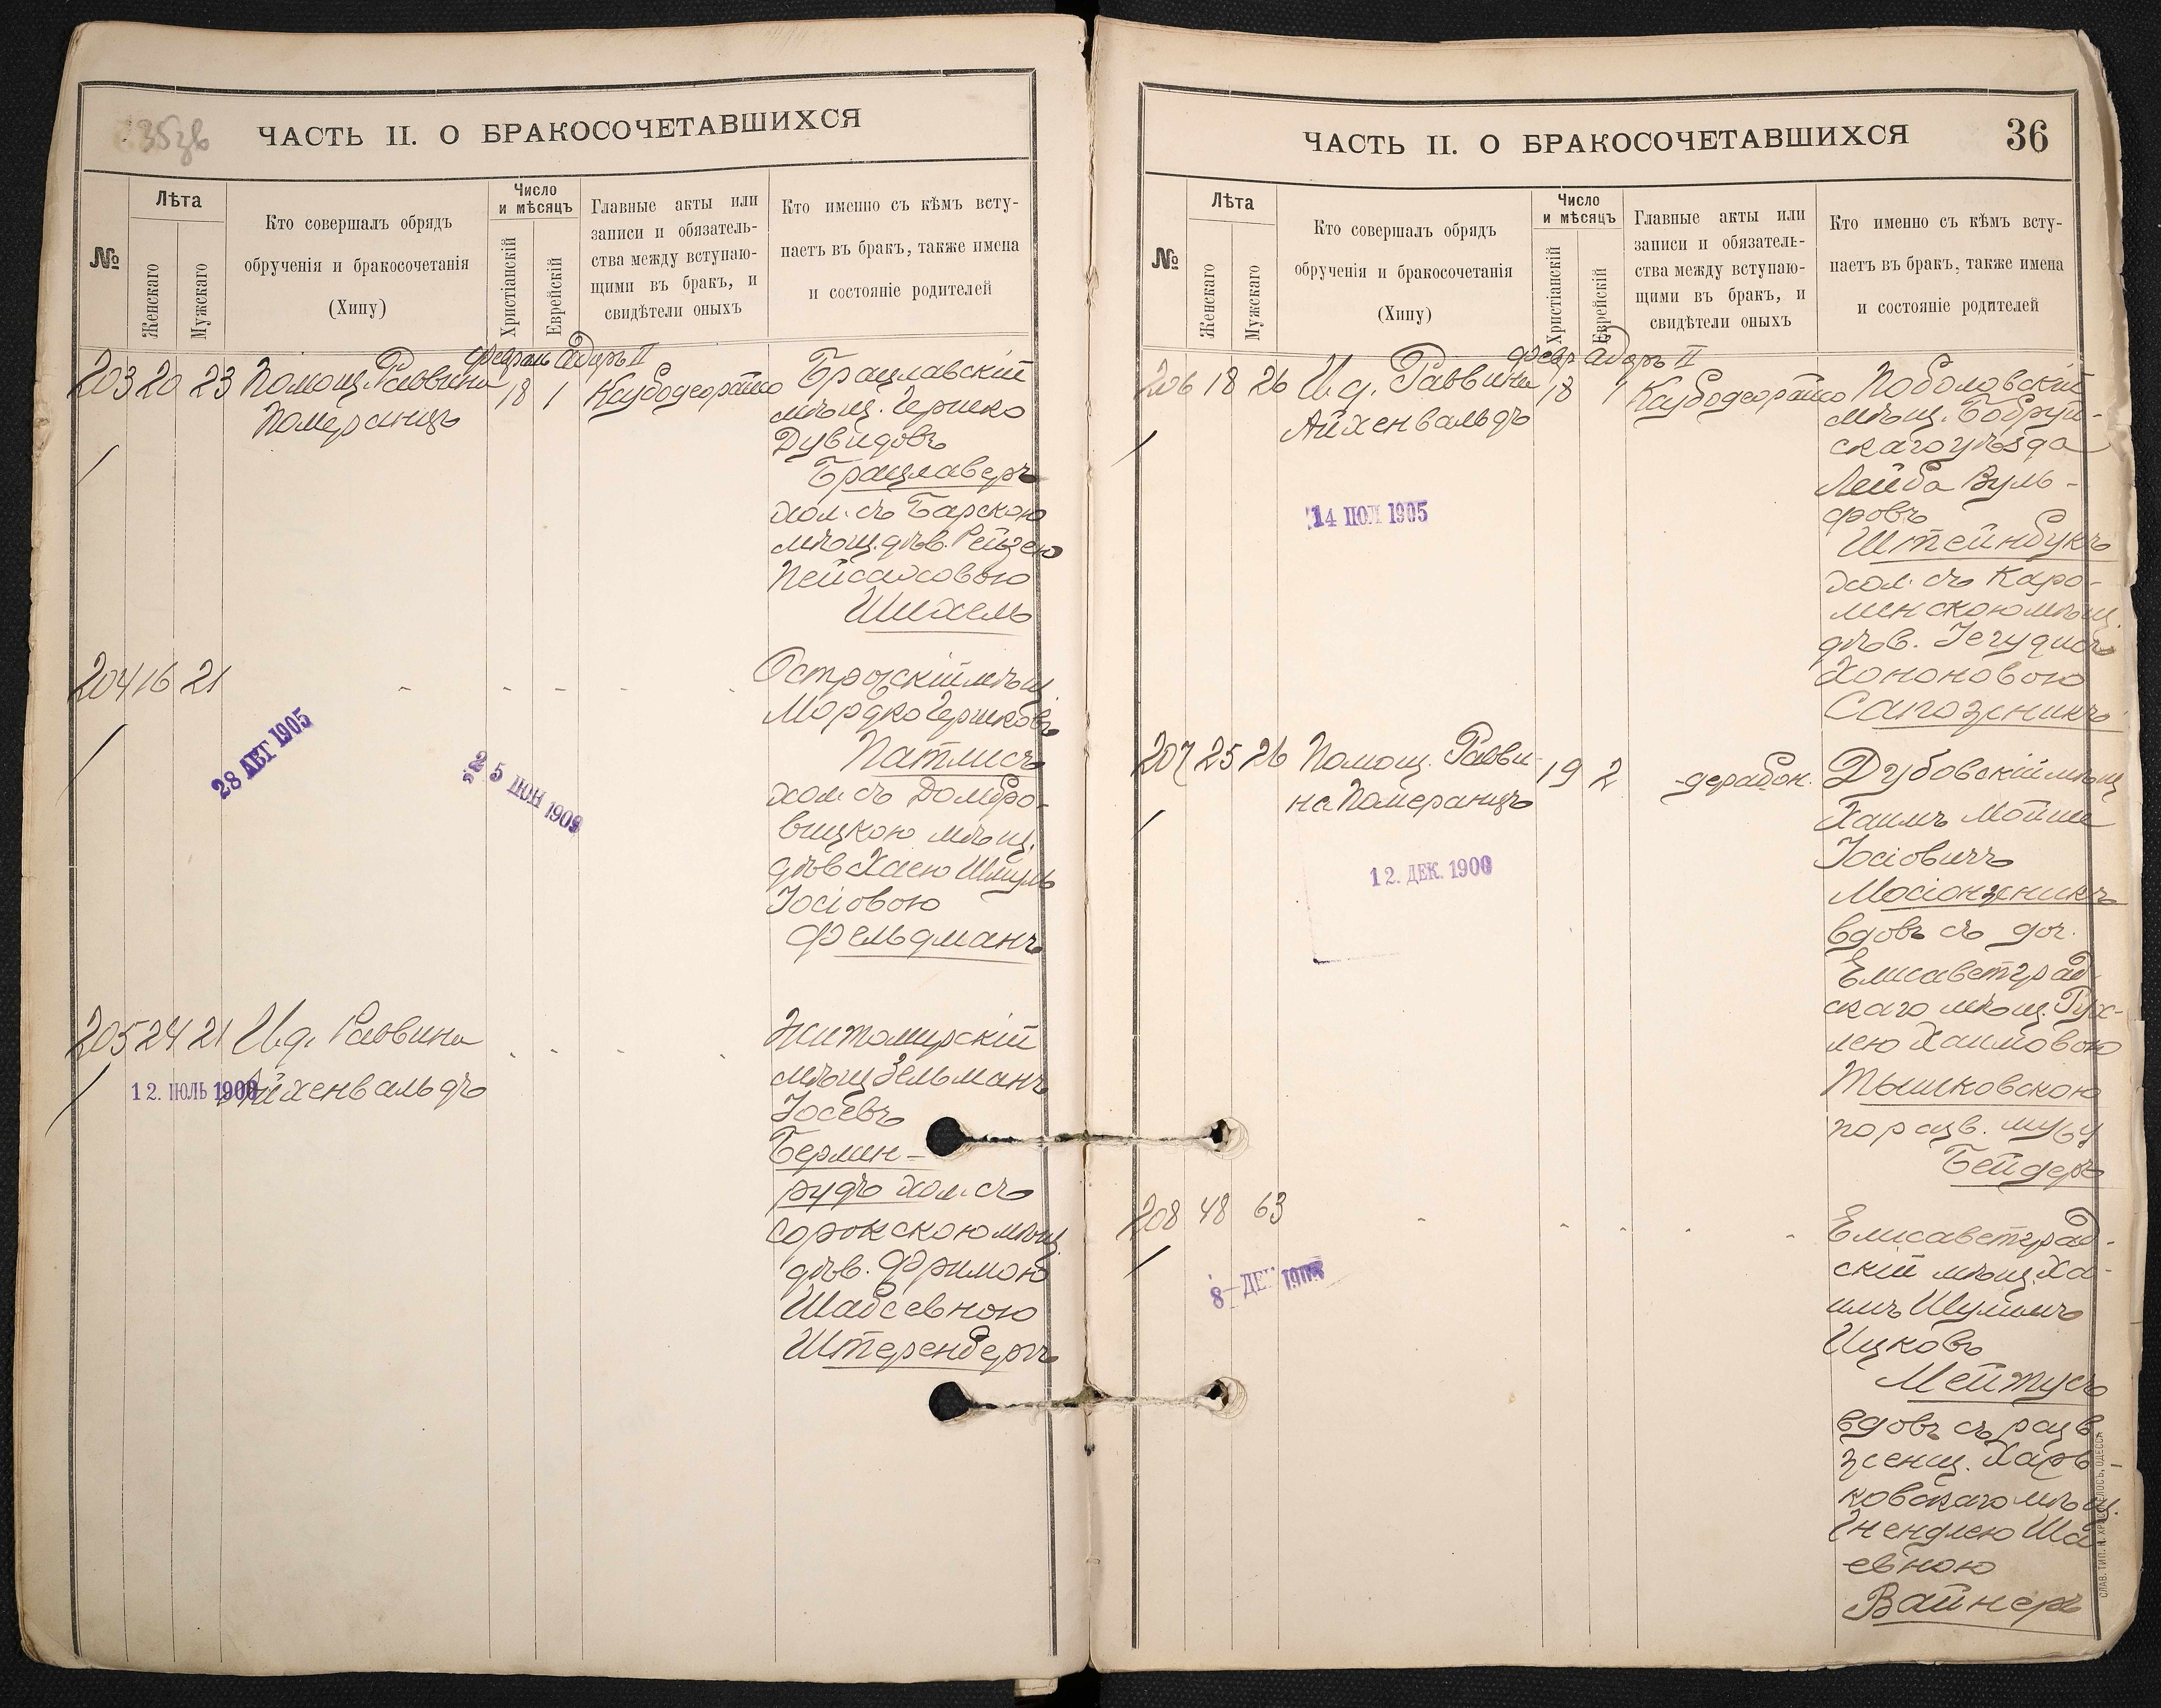 35зв
ЧАСТЬ II. О БРАКОСОЧЕТАВШИХСЯ
№
Лѣта
Женскаго
Мужскаго
Кто совершалъ обрядъ
обрученія и бракосочетанія
(Хипу)
Число
и мѣсяцъ
Христіанскій
Еврейскій
Главные акты или
записи и обязатель-
ства между вступаю-
щими въ бракъ, и
свидѣтели оныхъ
Кто именно съ кѣмъ всту-
паетъ въ бракъ, также имена
и состояніе родителей
Февраль Адаръ II
203 20 23 Помощ. Раввина 18 1
Померанцъ
Брацлавскій
мѣщ. Гершко
Дувидовъ
Брацлаверъ
хол. съ Барскою
мѣщ. дѣв. Рейзею
Пейсаховою
Шихель
204 16 21
28 АВГ 1905
25 ІЮН 1909
Острожскій мѣщ.
Мордко Гершковъ
Патлисъ
хол. съ Домбро-
вицкою мѣщ.
дѣв Хаею Шмуль
Іосіовою
Фельдманъ
205 24 21 И.д. Раввина
Айхенвальдъ
12. ІЮЛЬ 1900
Житомирскій
мѣщ Зельманъ
Іосевъ
Бермен-
рудъ хол. съ
Сорокскою мѣщ.
дѣв. Фримою
Шабсевною
Штеренбергъ
ЧАСТЬ II. О БРАКОСОЧЕТАВШИХСЯ 36
№
Лѣта
Женскаго
Мужскаго
Кто совершалъ обрядъ
обрученія и бракосочетанія
(Хипу)
Число
и мѣсяцъ
Христіанскій
Еврейскій
Главные акты или
записи и обязатель-
ства между вступаю-
щими въ бракъ, и
свидѣтели оныхъ
Кто именно съ кѣмъ всту-
паетъ въ бракъ, также имена
и состояніе родителей
Февр Адаръ II
206 18 26 И.д. Раввина 18 1
Айхенвальдъ
14 1905
Поболовскій
мѣщ. Бобруй-
скаго уѣзда
Лейба Вуль-
фовъ
Штейнбукъ
хол. съ Каро-
линскою мѣщ.
дѣв. Іегудисъ
Хононовою
Сапозникъ
207 25 26 Помощ. Равви- 19 2
на Померанцъ
12. ДЕК. 1900
Дубовскій мѣщ
Хаимъ Мойше
Іосіовичъ
Мосіонзникъ
вдовъ съ доч.
Елисаветград
скаго мѣщ. Рух-
лею Хаимовою
Тышковскою
по разв. мужу
Бейдеръ
208 48 63
8 ДЕК
Елисаветград-
скій мѣщ. Ха-
имъ Шулимъ
Ицковъ
Мейтусъ
вдовъ съ разв
женщ. Харь-
ковскаго мѣщ.
Гнендлею Ша-
евною
Вайнеръ